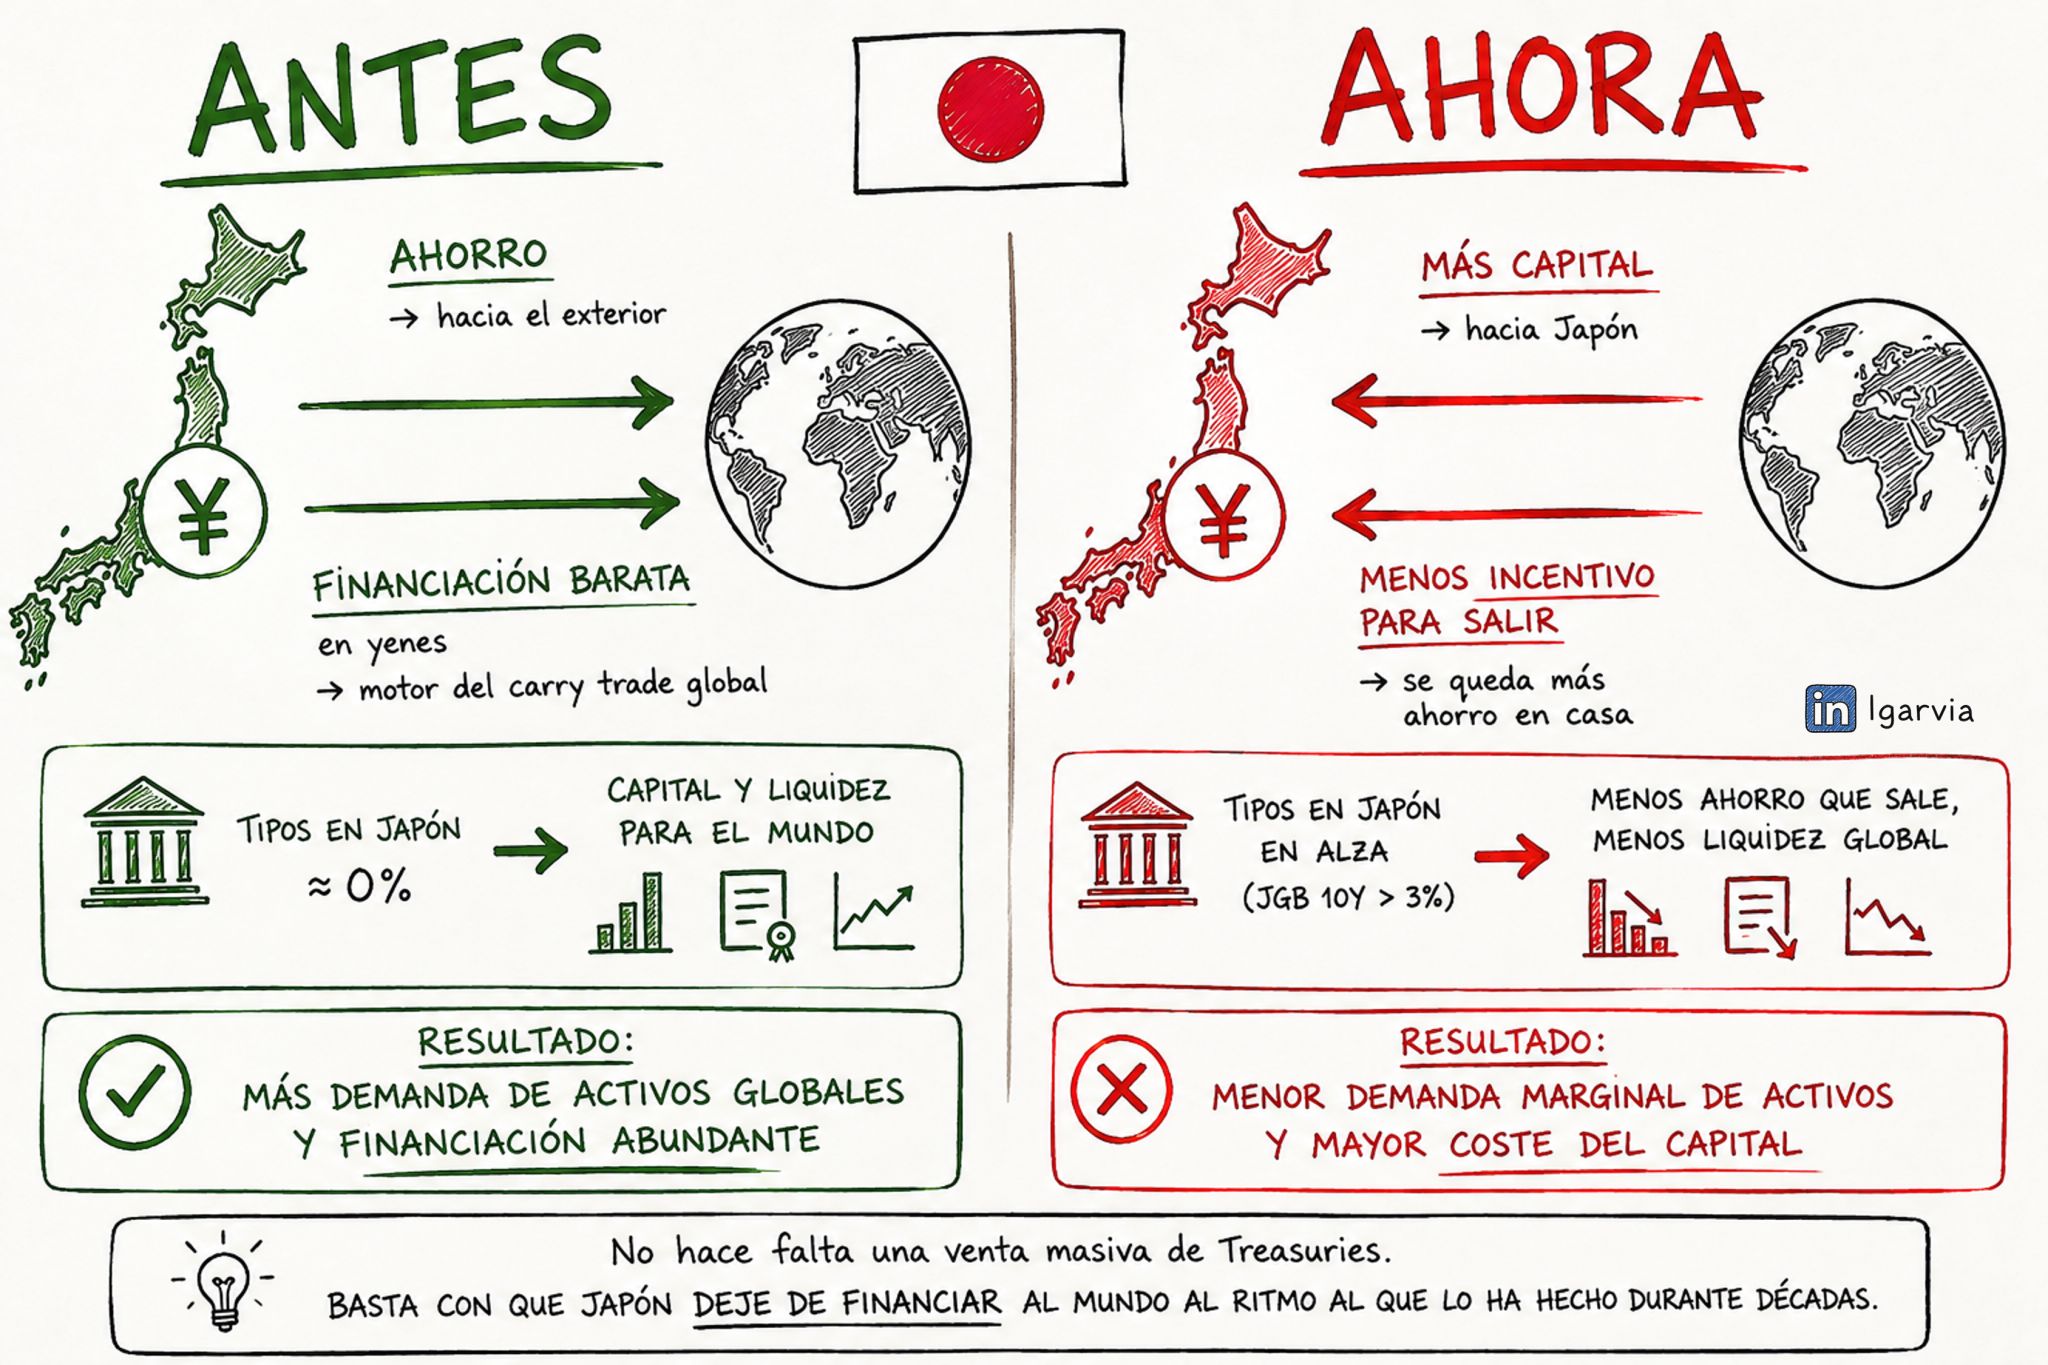 ANTES
AHORRO
→ hacia el exterior
¥
FINANCIACIÓN BARATA
en yenes
→ motor del carry trade global
TIPOS EN JAPÓN
≈ 0%
→
CAPITAL Y LIQUIDEZ
PARA EL MUNDO
RESULTADO:
MÁS DEMANDA DE ACTIVOS GLOBALES
Y FINANCIACIÓN ABUNDANTE
AHORA
MÁS CAPITAL
→ hacia Japón
¥
MENOS INCENTIVO
PARA SALIR
→ se queda más
ahorro en casa
in lgarvia
TIPOS EN JAPÓN
EN ALZA
(JGB 10Y > 3%)
→
MENOS AHORRO QUE SALE,
MENOS LIQUIDEZ GLOBAL
RESULTADO:
MENOR DEMANDA MARGINAL DE ACTIVOS
Y MAYOR COSTE DEL CAPITAL
No hace falta una venta masiva de Treasuries.
BASTA CON QUE JAPÓN DEJE DE FINANCIAR AL MUNDO AL RITMO AL QUE LO HA HECHO DURANTE DÉCADAS.